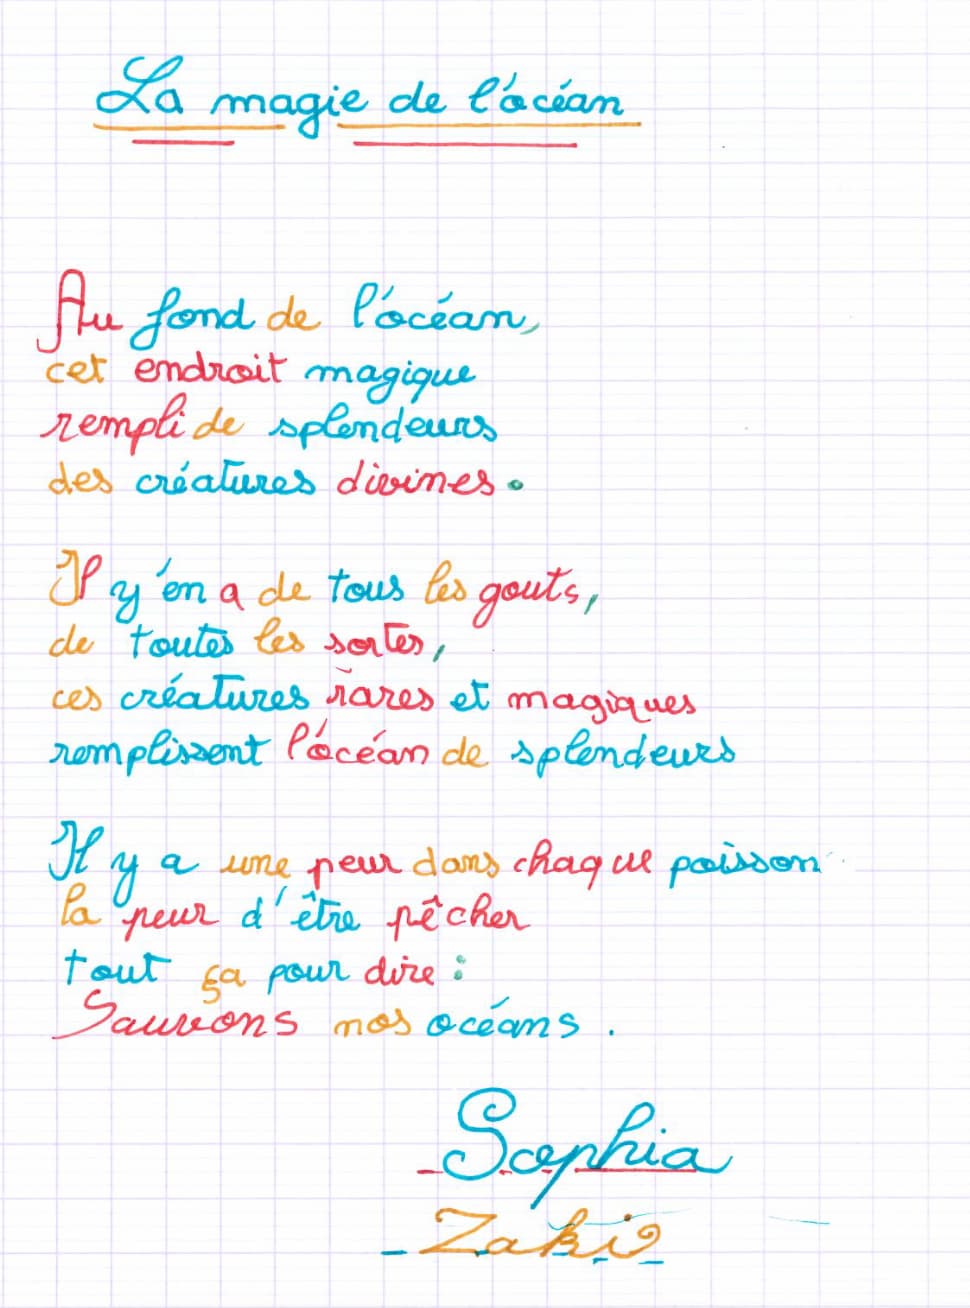 La magie de l'océan
Au fond de l'océan,
cet endroit magique
rempli de splendeurs
des créatures divines.
Il y'en a de tous les gouts,
de toutes les sortes,
ces créatures rares et magiques
remplissent l'océan de splendeurs
Il y a une peur dans chaque poisson
la peur d'être pêcher
tout ça pour dire :
Sauvons nos océans.
Sophia
Zaki